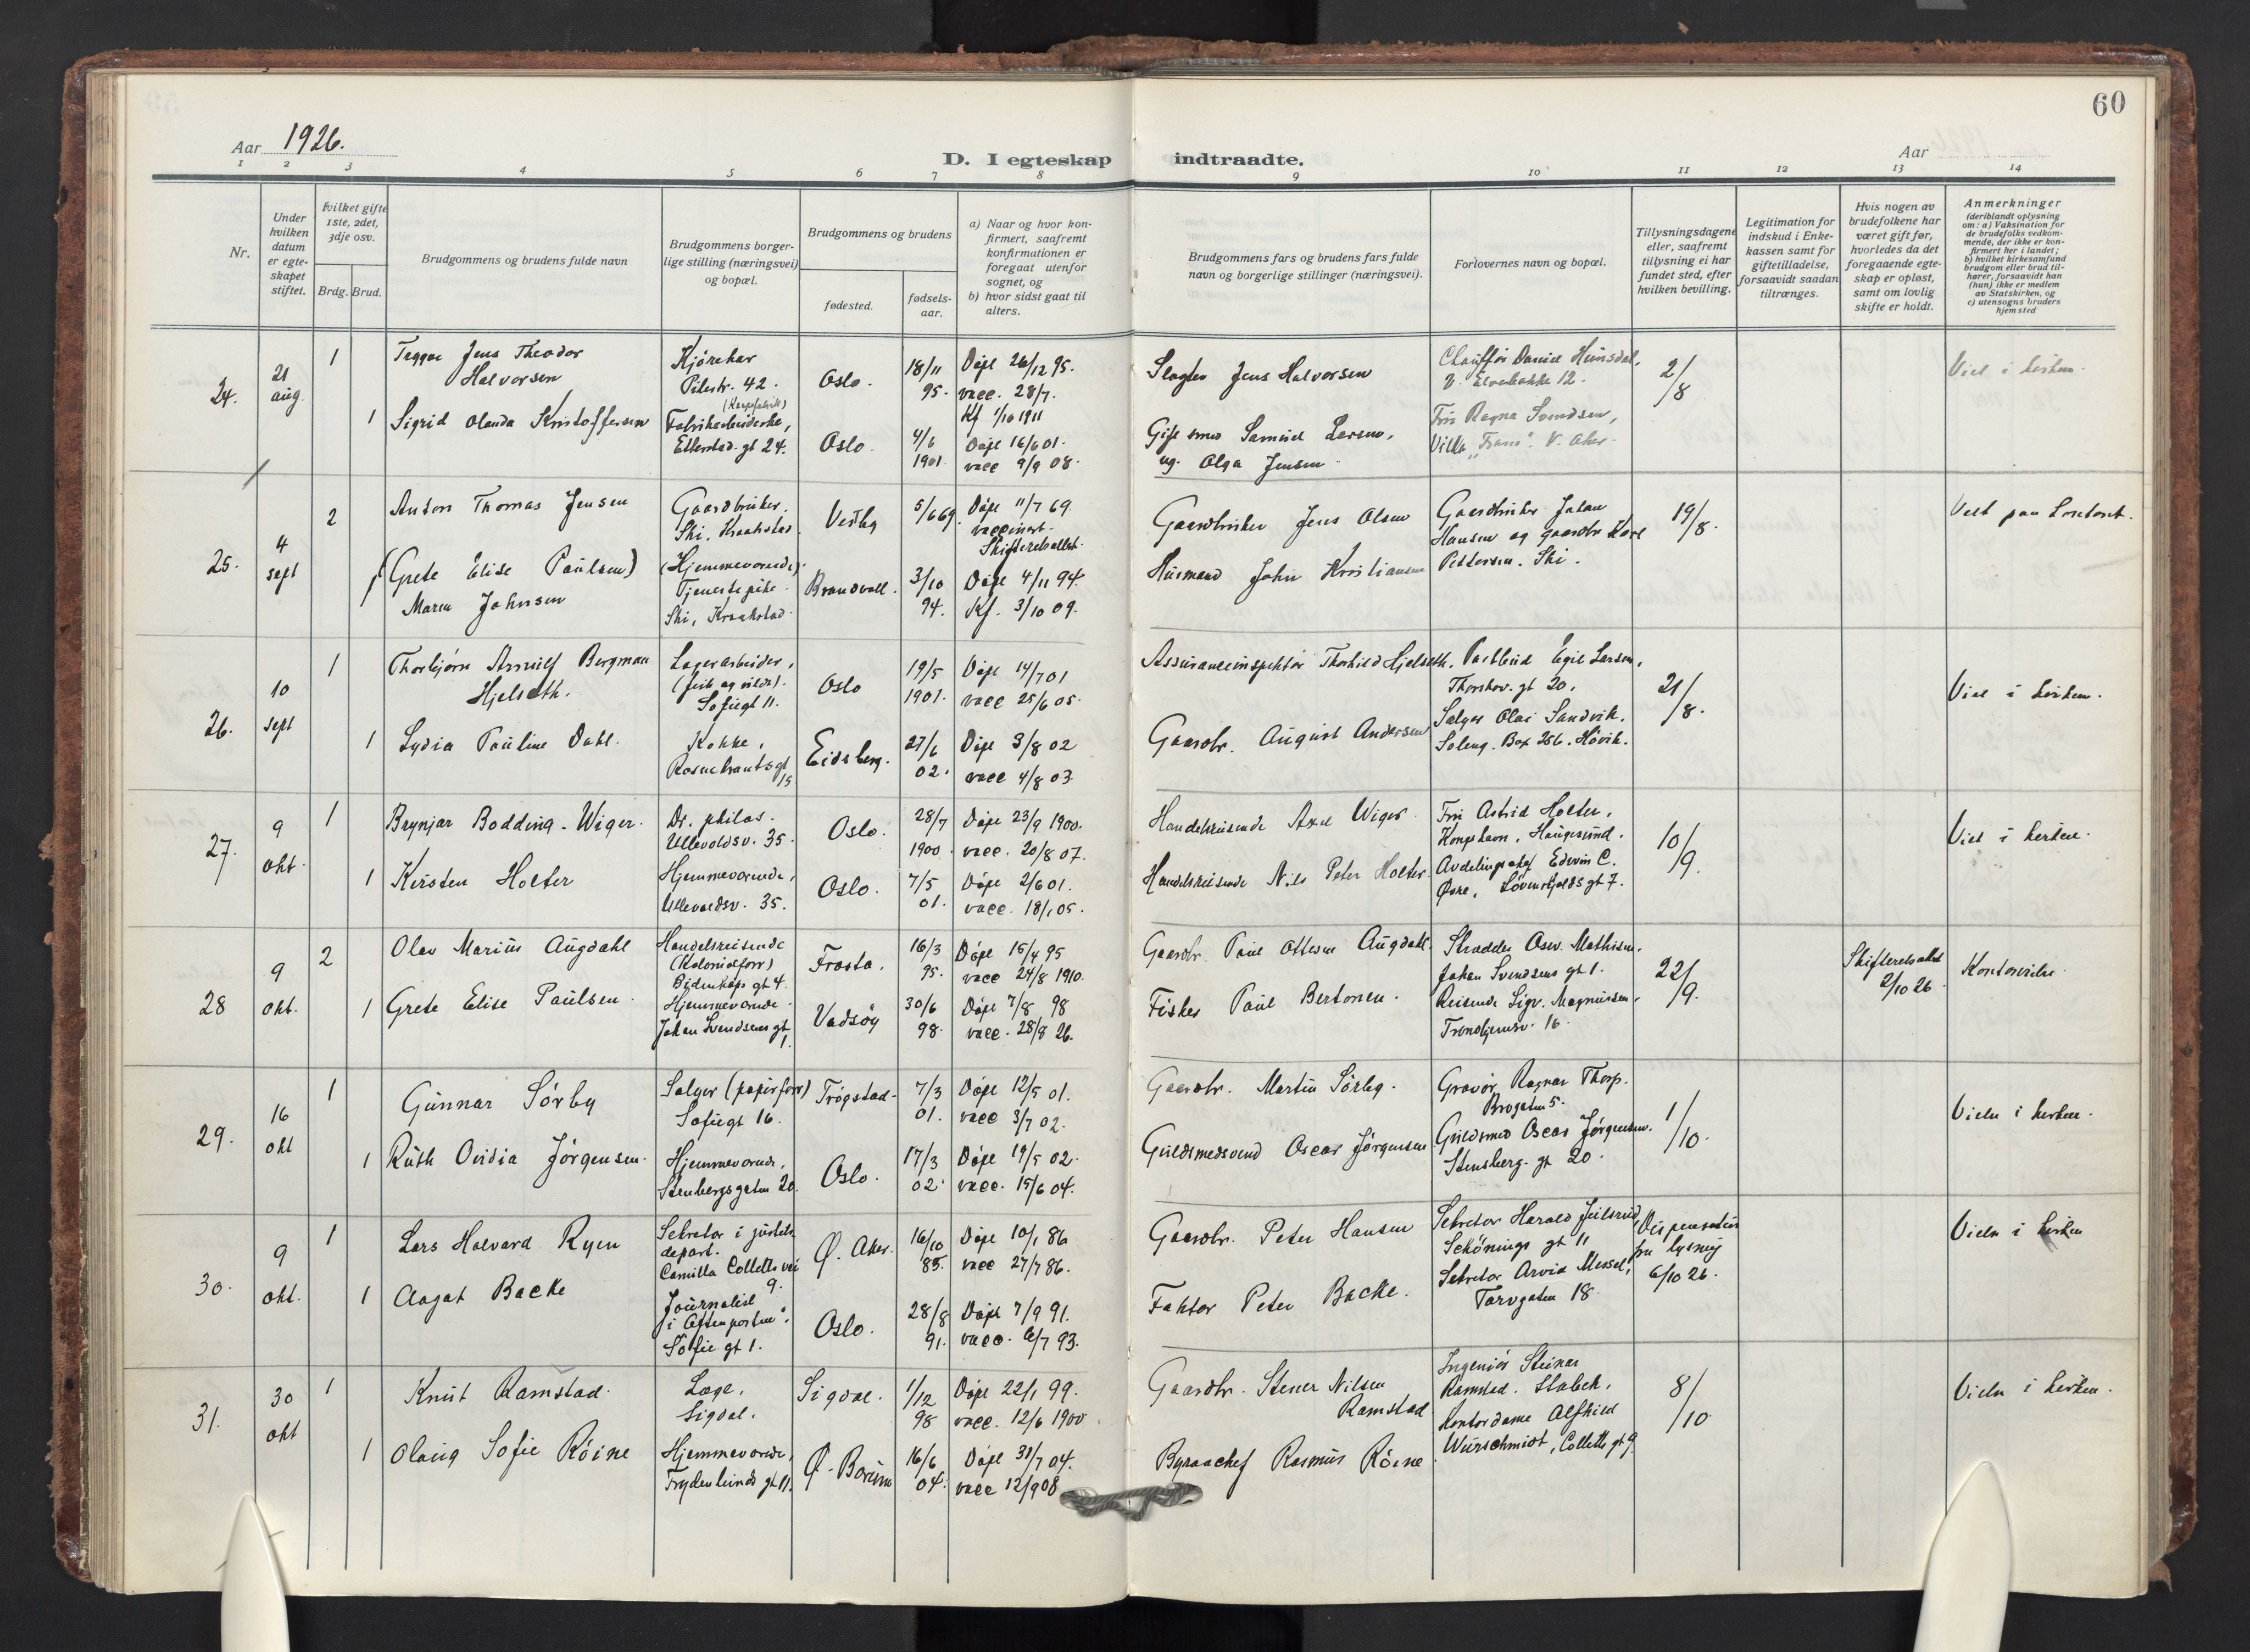 60
Aar 1926.
D. I egteskap indtraadte.
Aar
1 2 3 4 5 6 7 8 9 10 11 12 13 14
Nr.
Under hvilken datum er egte-skapet stiftet.
hvilket gifte 1ste, 2det, 3dje osv.
Brdg. Brud.
Brudgommens og brudens fulde navn
Brudgommens borger-lige stilling (næringsvei) og bopæl.
Brudgommens og brudens
fødested.
fødsels-aar.
a) Naar og hvor kon-firmert, saafremt konfirmationen er foregaat utenfor sognet, og
b) hvor sidst gaat til alters.
Brudgommens fars og brudens fars fulde navn og borgerlige stillinger (næringsvei).
Forlovernes navn og bopæl.
Tillysningsdagene eller, saafremt tillysning ei har fundet sted, efter hvilken bevilling.
Legitimation for indskud i Enke-kassen samt for giftetilladelse, forsaavidt saadan tiltrænges.
Hvis nogen av brudefolkene har været gift før, hvorledes da det foregaaende egte-skap er opløst, samt om lovlig skifte er holdt.
Anmerkninger (deriblandt oplysning om: a) Vaksination for de brudefolks vedkom-mende, der ikke er kon-firmert her i landet; b) hvilket kirkesamfund brudgom eller brud til-hører, forsaavidt han (hun) ikke er medlem av Statskirken, og c) utensogns bruders hjemsted
24.
21 aug.
1
Jens Theodor
Halvorsen
Kjørekar
Pilestr. 42.
Oslo.
18/11
95.
Døpt 26/12 95.
vacc. 28/7.
Kf 1/10 1911
Slagter Jens Halvorsen
Chauffør Daniel
2/8
Viet i kirken.
1
Sigrid Olanda Kristoffersen
Fabrikarbeiderske,
Etterstad. gt 24.
Oslo.
4/6
1901.
Døpt 16/6 01.
vacc 9/9 08.
Samuel Larsen,
ug. Olga Jensen
Frk Ragna Svendsen,
Villa V. Aker.
25.
4 sept
2
Anton Thomas Jensen
Gaardbruker.
Ski, Kraakstad.
Vestby
5/6 69.
Døpt 11/7 69.
vaccinert.
Skifteretsattest.
Gaardbruker Jens Olsen
Gaardbruker Johan
Hansen og gaardbr Karl
Pettersen. Ski.
19/8.
Viet paa kontoret.
1
(Grete Elise Paulsen)
Maren Johnsen
(Hjemmeværende).
Tjenestepike.
Ski, Kraakstad.
3/10
94.
Døpt 4/11 94.
Kf. 3/10 09.
Husmand John Kristiansen
26.
10 sept
1
Thorbjørn Arnulf Bergman
Hjelseth.
Lagerarbeider,
Sofiegt 11.
Oslo
19/5
1901.
Døpt 14/7 01
vacc 25/6 05.
Assuranceinspektør Thorhild Hjelseth.
Egil Larsen,
Thorshov. gt 20.
21/8.
Viet i kirken.
1
Lydia Pauline Dahl.
Kokke,
Rosenkrantsgt
15
Eidsberg.
27/6
02.
Døpt 3/8 02
vacc 4/8 03.
Gaardbr. August Andersen
Selger Olai Sandvik.
Box 256. Høvik.
27.
9 okt
1
Brynjar Bodding-Wiger.
Dr. philos.
Ullevoldsv. 35.
Oslo.
28/7
1900.
Døpt 23/9 1900.
vacc. 20/8 07.
Handelsreisende Axel Wiger
Frk Astrid Holter,
Haugesund.
10/9.
Viet i kirken.
1
Kirsten Holter
Hjemmeværende,
Ullevoldsv. 35.
Oslo.
7/5
01.
Døpt 2/6 01.
vacc. 18/1 05.
Handelsreisende Nils Peter Holter.
Avdelingschef Edwin C.
Øvre, Løvenskjolds gt 7.
28
9 okt.
2
Olav Marius Augdahl
Handelsreisende
(Kolonialforr)
Bidenkaps gt 4.
Frosta.
16/3
95.
Døpt 15/4 95
vacc 24/8 1910.
Gaardbr. Paul Ottesen Augdahl.
Skrædder Osw. Mathisen.
Johan Svendsens gt 1.
22/9.
Skifteretsattest
2/10 26
Kontorvielse
1
Grete Elise Paulsen.
Hjemmeværende.
Johan Svendsens gt
1.
Vadsøy
30/6
98.
Døpt 7/8 98
vacc. 28/8 26.
Fisker Paul Bertonen.
Reisende Sigv. Magnussen.
Trondhjemsv. 16.
29.
16 okt
1
Gunnar Sørby
Selger (papirforr)
Sofiegt 16.
Trøgstad.
7/3
01.
Døpt 12/5 01.
vacc 3/7 02.
Gaardbr. Martin Sørby.
Gravør Ragnar Thorp.
Brogaten 5.
1/10.
Viede i kirken.
1
Ruth Ovidia Jørgensen.
Hjemmeværende,
Stensbergsgaten 20.
Oslo.
17/3
02.
Døpt 19/5 02.
vacc. 15/6 04.
Guldsmedsvend Oscar Jørgensen
Guldsmed Oscar Jørgensen.
Stensberg. gt 20.
30.
9 okt.
1
Lars Halvard Ryen
Sekretær i justits
depart.
Camilla Colletts vei
9.
Ø. Aker.
16/10
85.
Døpt 10/1 86
vacc 27/7 86.
Gaardbr. Peter Hansen
Sekretær Harald
Schönings gt 11
Dispensation
fra lysning
6/10 26.
Viede i kirken
1
Aagot Backe
Journalist
i "Aftenposten".
Sofie gt 1.
Oslo.
28/8
91.
Døpt 7/9 91.
vacc. 6/7 93.
Faktor Peter Backe.
Sekretær Arvid Messel,
Torvgaten 18.
31.
30 okt
1
Knut Ramstad.
Læge,
Sigdal.
Sigdal.
1/12
98
Døpt 22/1 99.
vacc. 12/6 1900.
Gaardbr. Stener Nilsen
Ramstad
Ingeniør Steinar
Ramstad. Stabek.
8/10.
Viede i kirken.
1
Olaug Sofie Röine
Hjemmeværende,
Frydenlunds gt 11.
Ø. Bærum
16/6
04.
Døpt 31/7 04.
vacc 12/9 08
Byraachef Rasmus Röine
Kontordame Alfhild
Würschmidt, Colletts gt 9.